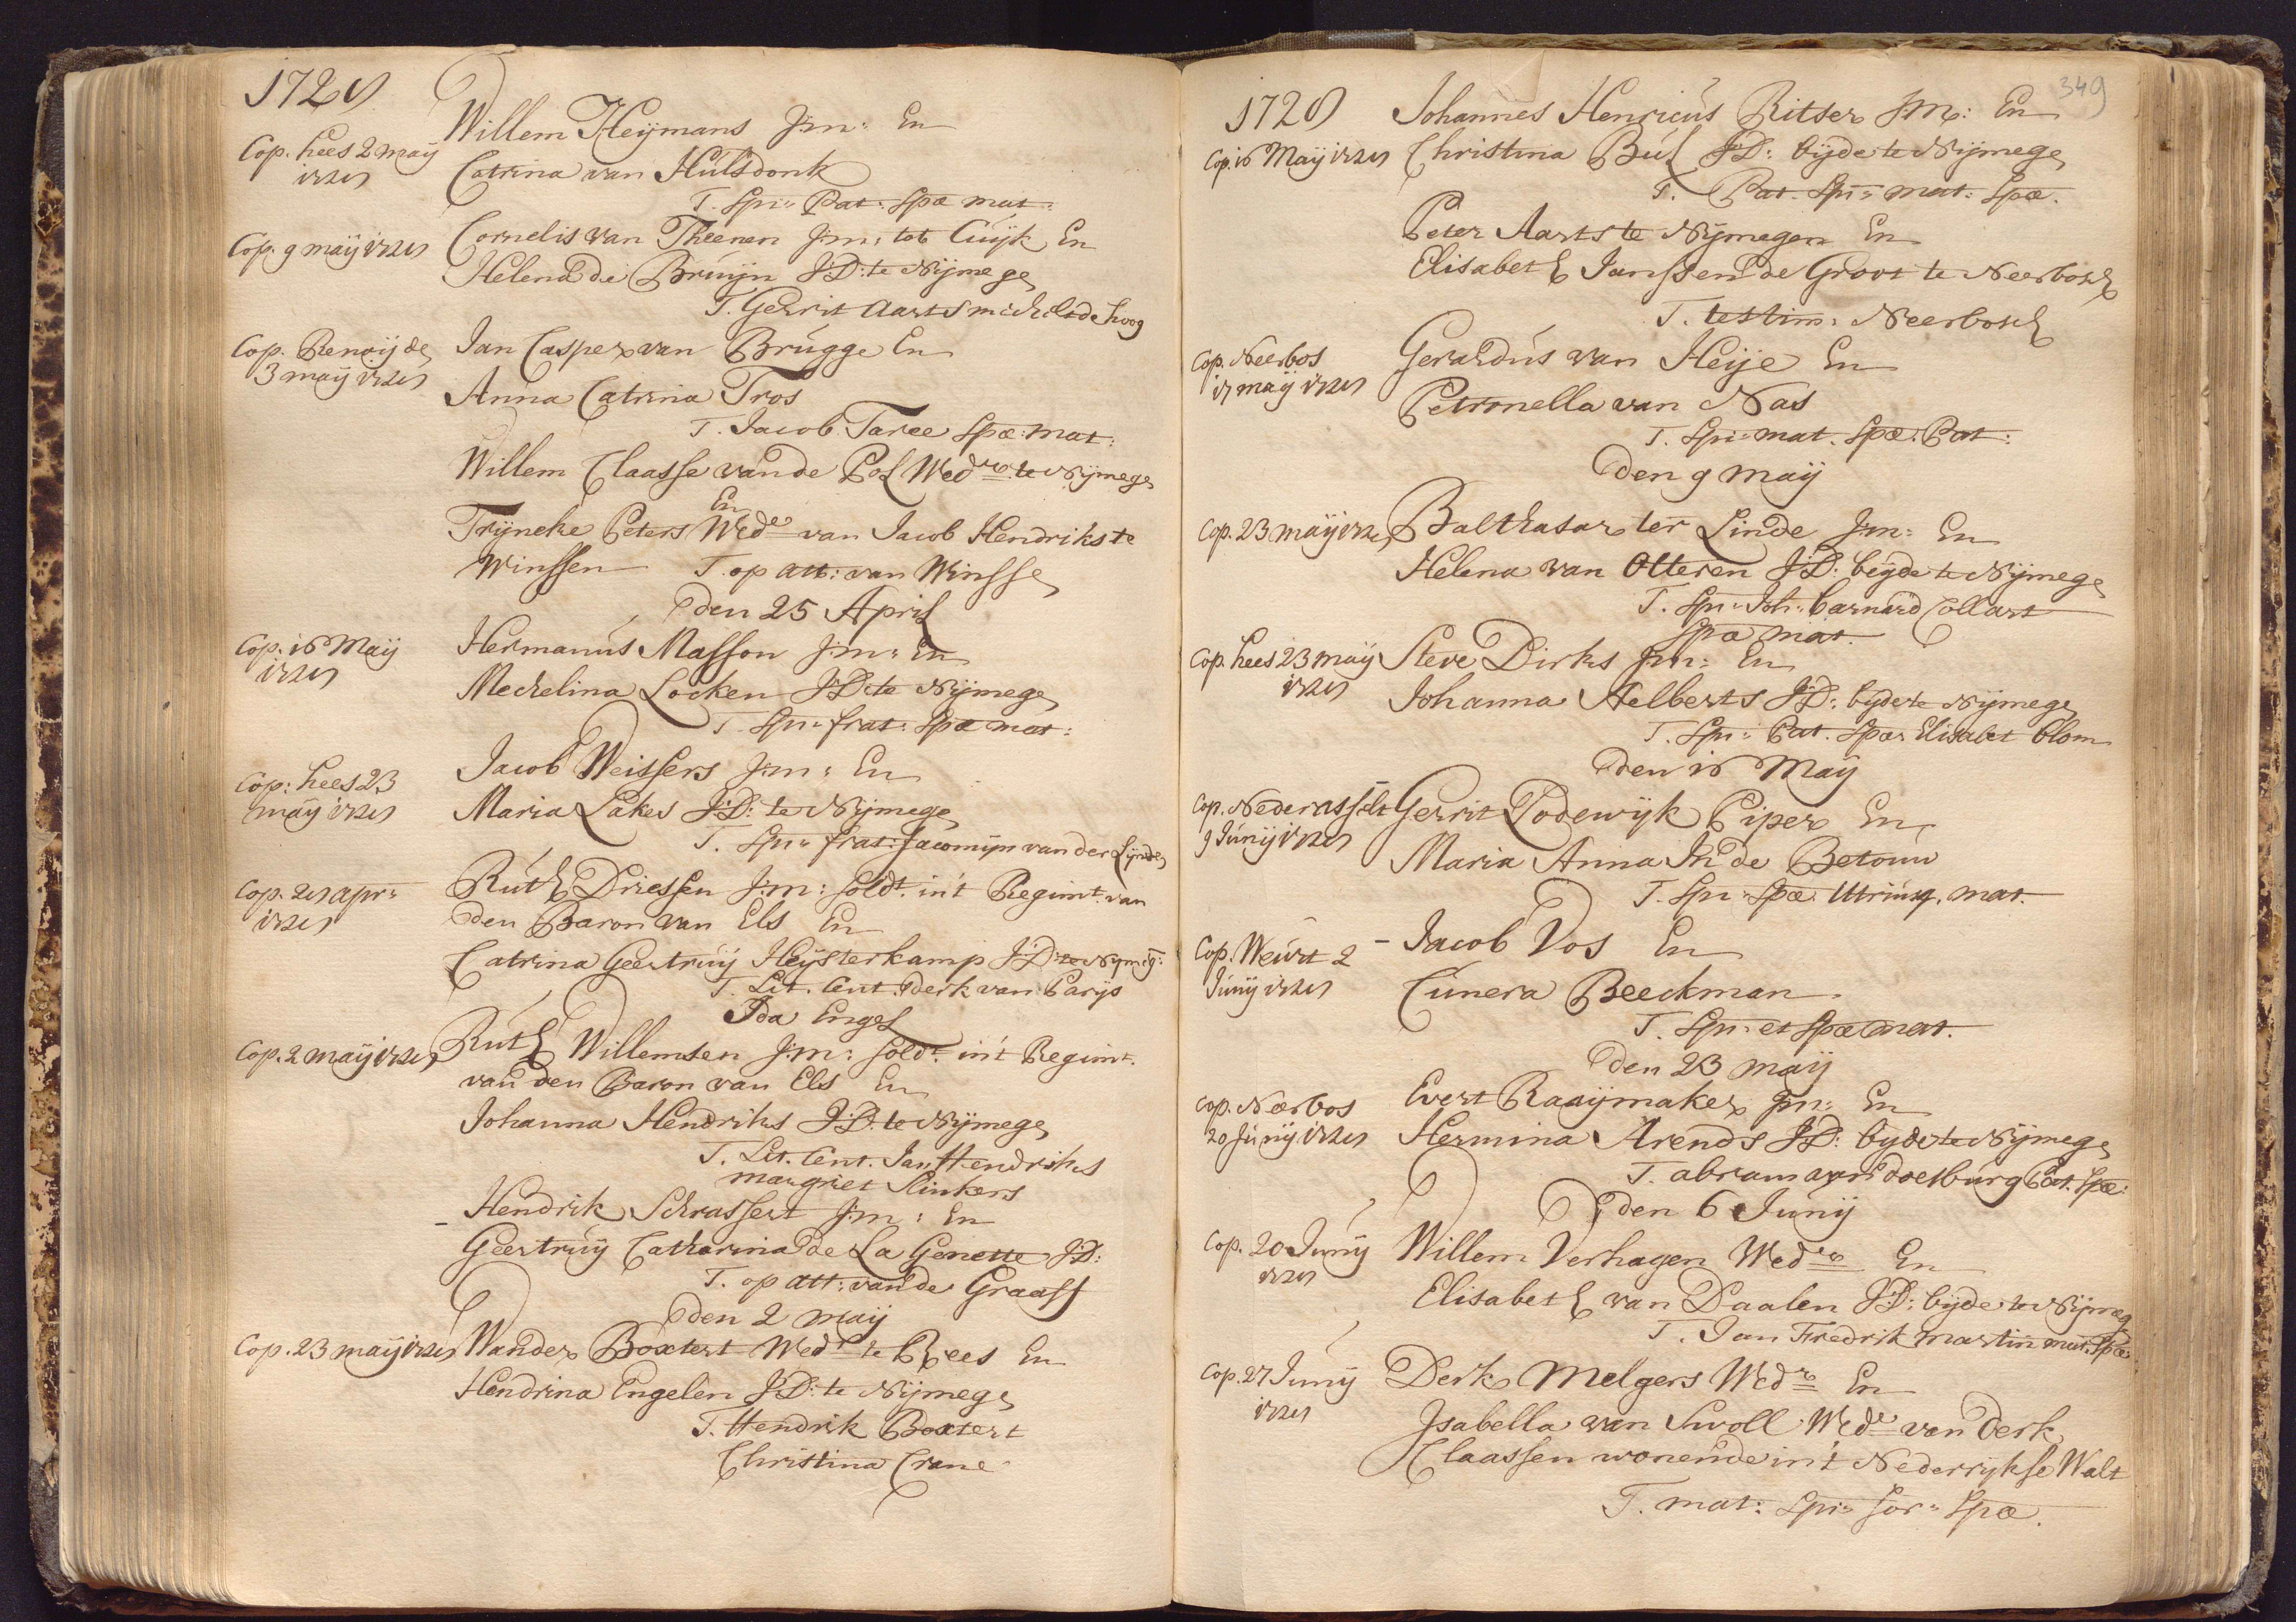 1728
Willem Heijmans J:m: En
Cop. hees 2 maij
1728
Catrina van Hulsdonk
T. Spi: Pat: Spæ mat:
Cop. 9 maij 1728
Cornelis van Theenen J:m: tot Cuijk En
Helena de Bruijn J:D: te Nijmege
T. Gerrit Aarts michel de hoog
Cop. Renoij de
3 maij 1728
Jan Casper van Brugge En
Anna Catrina Tros
T. Jacob Taree Spæ: mat:
Willem Claasse vande Pol Wedr te Nijmege
En
Trijneke Peters Wede van Jacob Hendriks te
Winssen T. op att: van Winsse
den 25 April
Cop. 16 Maij
1728
Hermanus Masson J:m: En
Mechelina Locken J:D: te Nijmege
T. Spi: frat: Spæ mat:
Cop: hees 23
maij 1728
Jacob Weissers J:m: En
Maria Lakes J:D: te Nijmege
T. Spi: frat: Jacomijn van der Lijnde
Cop. 28 apr:
1728
Ruth Driessen J:m: soldt. in't Regimt. van
den Baron van Els En
Catrina Geertruij Heijsterkamp J:D: te Nijmeg:
T. Lit. Cent. Derk van Parijs
Ida Engel
Cop. 2 maij 1728
Ruth Willemsen J:m: soldt. in't Regimt.
van den Baron van Els En
Johanna Hendriks J:D: te Nijmege
T. Lit. Cent. Jan Hendriks
margriet Slinkers
- Hendrik Schrassert J:m: En
Geertruij Catharina de La Genette J:D:
T. op att: vande Graaff
den 2 maij
Cop. 23 maij 1728
Wander Boxtert Wedr te Rees En
Hendrina Engelen J:D: te Nijmege
T. Hendrik Boxtert
Christina Crane
349
1728
Johannes Henricus Ritser J:m: En
Cop. 16 Maij 1728
Christina Bul J:D: bijde te Nijmege
T. Pat. Spi: mat: Spæ.
Peter Aarts te Nijmegen En
Elisabeth Janssen de Groot te Neerbosch
T. testim: Neerbosch
Cop. Neerbos
17 maij 1728
Gerardus van Heije En
Petronella van Nas
T. Spi: mat. Spæ: Pat:
den 9 maij
Cop. 23 maij 1728
Balthasar ter Linde J:m: En
Helena van Otteren J:D: beijde te Nijmege
T. Spi: Joh: barnard Collart
Spæ mat.
Cop. hees 23 maij
1728
Steve Dirks J:m: En
Johanna Aelberts J:D: bijde te Nijmege
T. Spi: Pat. Spæ: Elisabet blom
den 16 Maij
Cop. Nederasselt
9 Junij 1728
Gerrit Lodewijk Piper En
Maria Anna In de Betouw
T. Spi: Spæ Utriusq. mat.
Cop. Weurt 2
Junij 1728
- Jacob Vos En
Cunera Beeckman
T. Spi: et Spæ mat.
den 23 maij
Cop. Neerbos
20 Junij 1728
Evert Raaijmaker J:m: En
Hermina Arends J:D: bijde te Nijmege
T. abram van doesburg Pat. Spæ:
den 6 Junij
Cop. 20 Junij
1728
Willem Verhagen Wedr En
Elisabeth van Daalen J:D: bijde te Nijmeg
T. Jan Fredrik martin mat. Spæ
Cop. 27 Junij
1728
Derk Melgers Wedr En
Isabella van Swoll Wede van Derk
Claassen wonende in't Nederrijkse Walt
T. mat: Spi: Sor: Spæ.